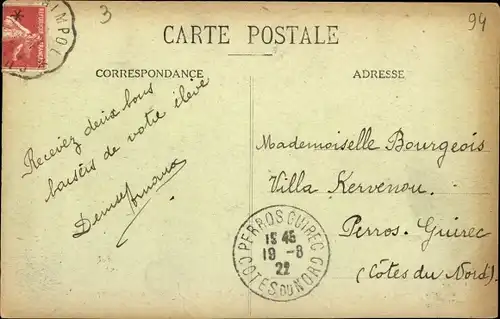 3
94
CARTE POSTALE
CORRESPONDANCE
ADRESSE
Recevez deux bons
baisers de votre élève
Mademoiselle Bourgeois
Villa Kervenou,
Perros-Guirec
(Côtes du Nord).
PERROS GUIREC
15 45
19 -8
22
COTES DU NORD